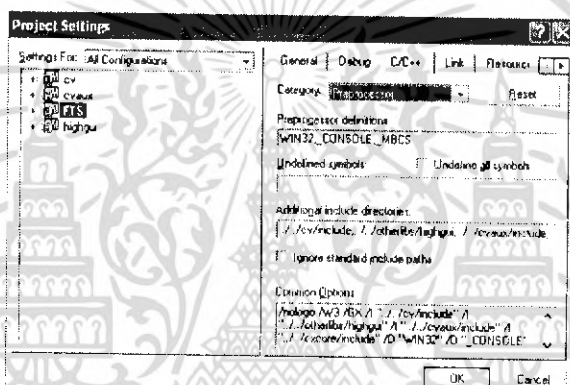 Project Settings
Settings For: All Configurations
cv
cvaux
FTS
highgui
General Debug C/C++ Link Resource
Category: Preprocessor Reset
Preprocessor definitions:
WIN32,_CONSOLE,_MBCS
Undefined symbols: Undefine all symbols
Additional include directories:
../../cv/include,../../otherlibs/highgui,../../cvaux/include
Ignore standard include paths
Common Options:
/nologo /W3 /GX /I "../../cv/include" /I
"../../otherlibs/highgui" /I "../../cvaux/include" /I
"../../cxcore/include" /D "WIN32" /D "_CONSOLE"
OK Cancel